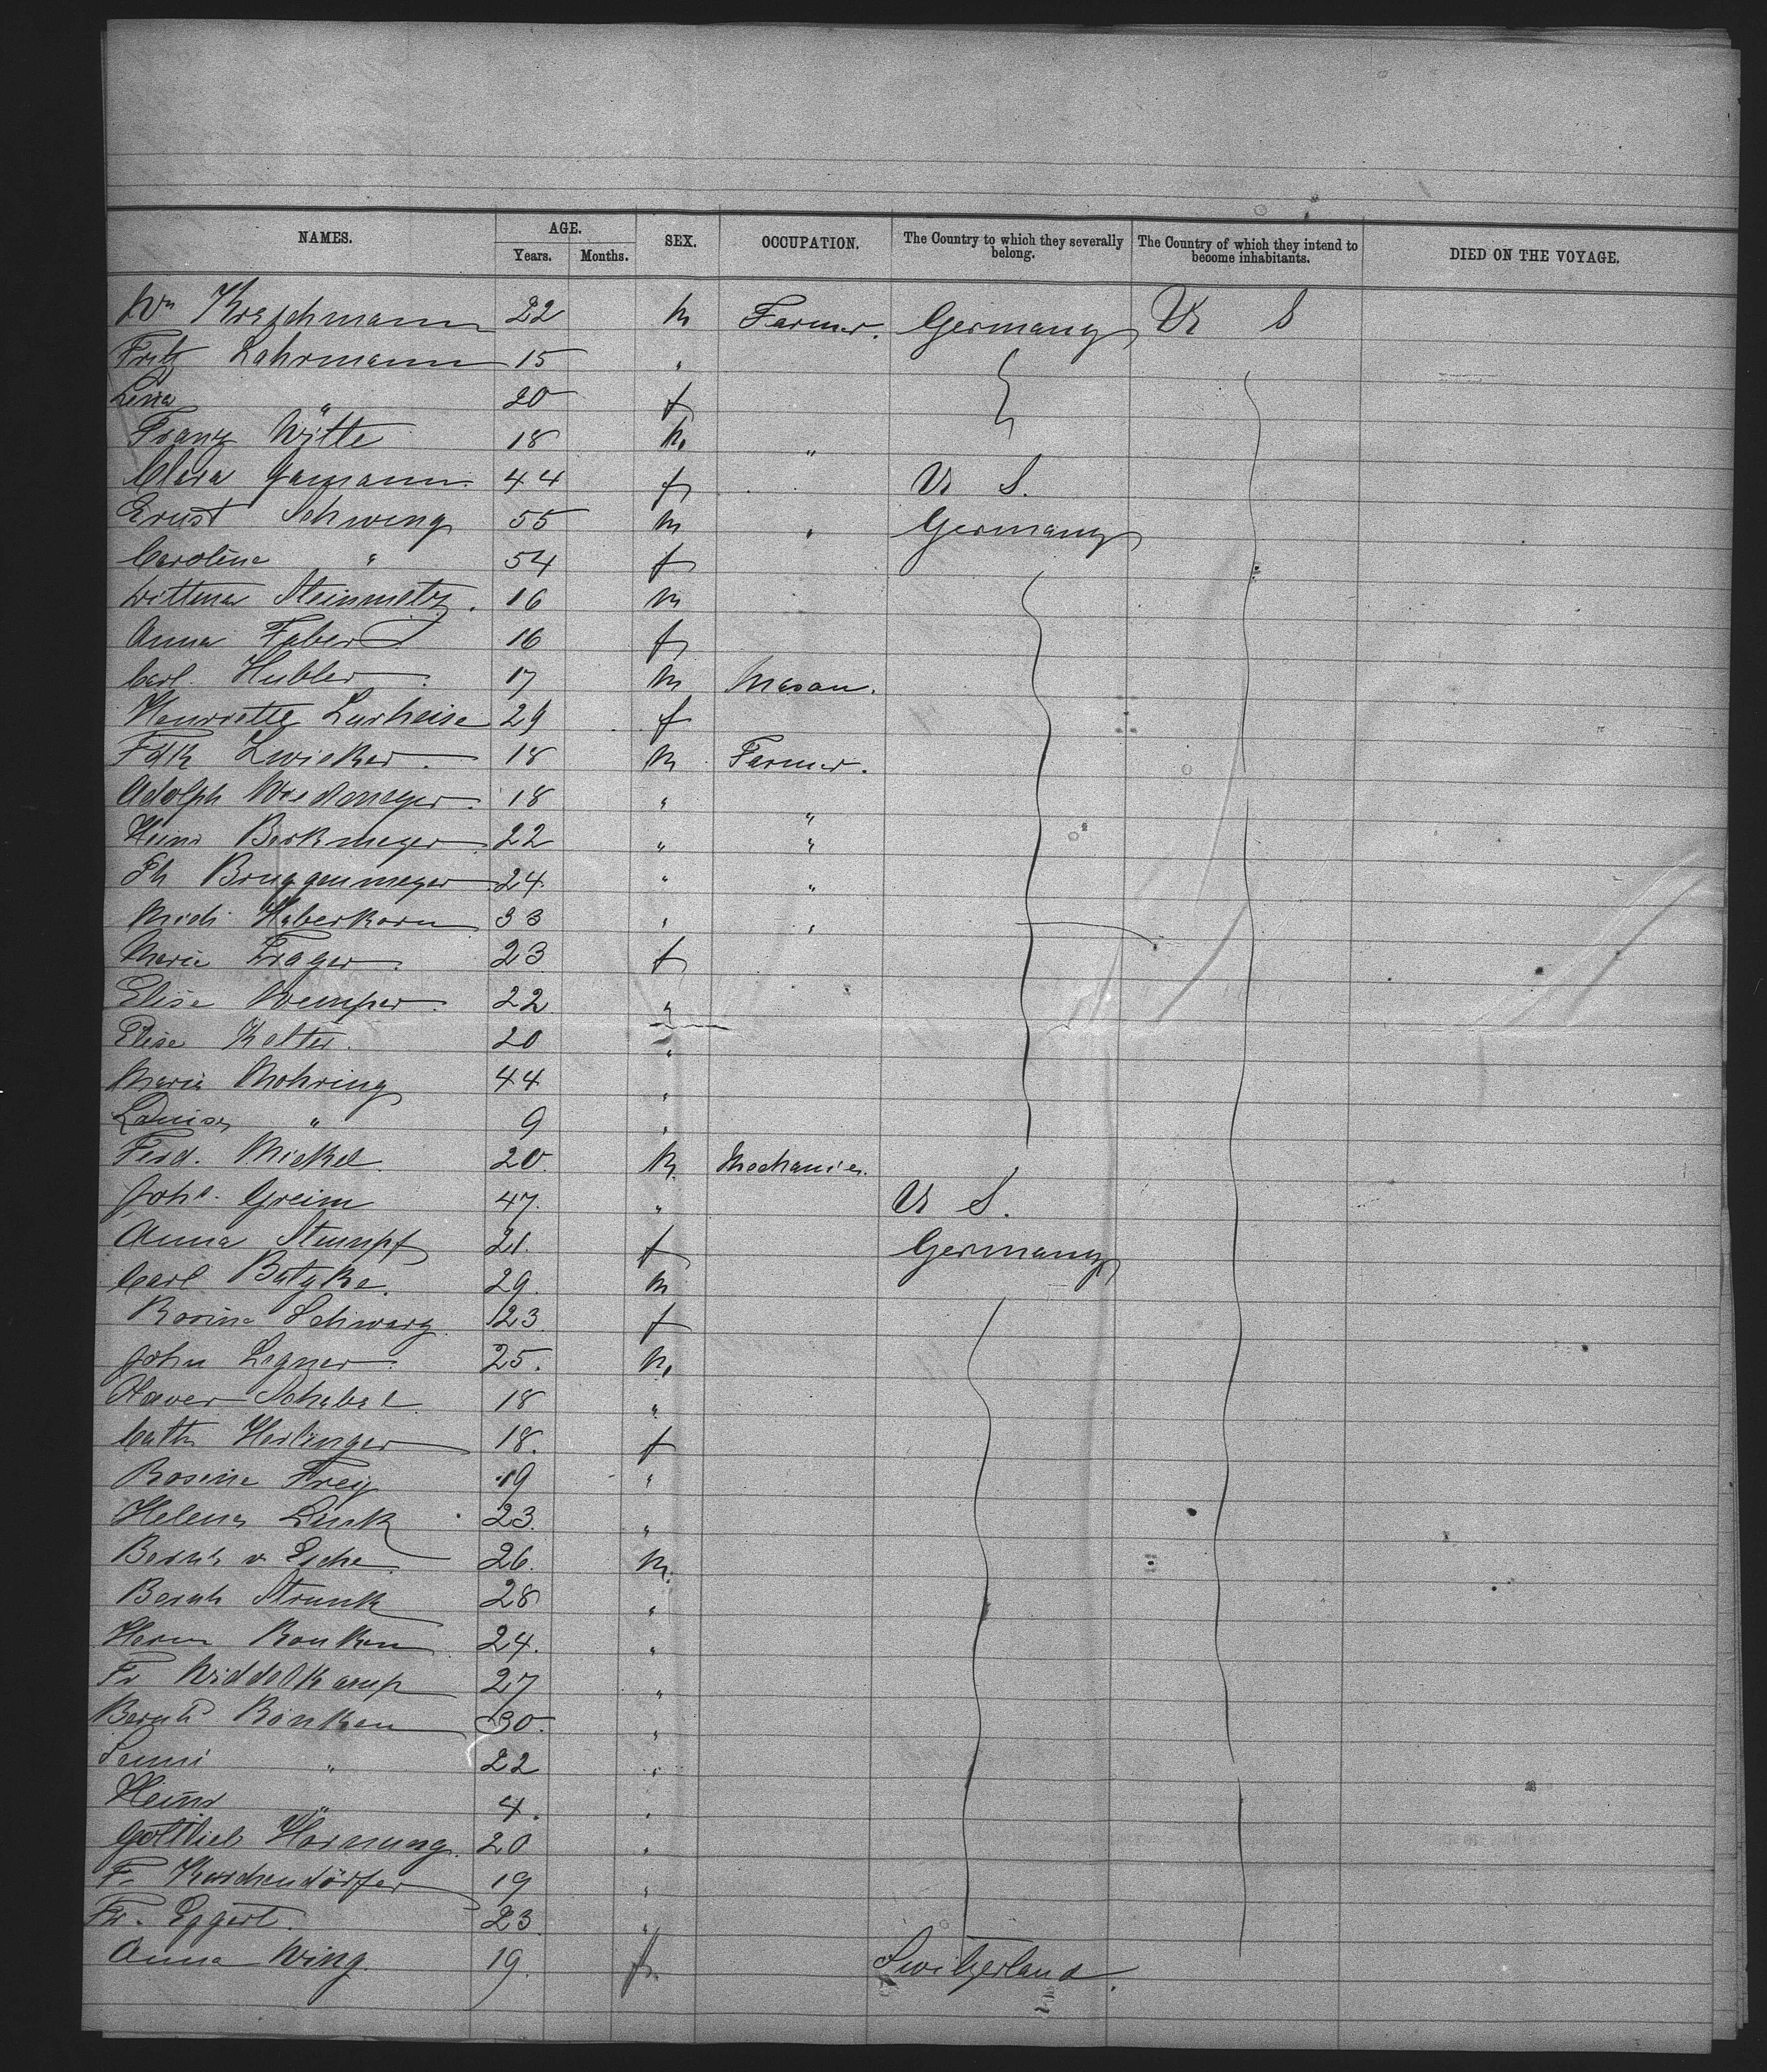 NAMES. AGE. SEX. OCCUPATION. The Country to which they severally belong. The Country of which they intend to become inhabitants. DIED ON THE VOYAGE.
Years. Months.
Wm Kraschmann 22 m Farmer. Germany U S
Fritz Lahrmann 15 "
Lina " 20 f
Franz Witte 18 m "
Clara Gamann 44 f U S.
Ernst Schwing 55 m " Germany
Carolina " 54 f
Steinmetz. 16 m
Anna Faber 16 f
Carl Hubler 17 m Mason.
Henriette 29 f
Fdk Zwicker 18 m Farmer.
Adolph Wiedemeyer 18 " "
Heinr Berkmeyer 22 " "
Bruggenmeyer 24 " "
Mich Haberkorn 33 " "
Marie Trager 23 f
Elise Kemper 22 "
Elise Kolter 20 "
Maria Mohring 44 "
Louise " 9 "
Ferd. Mickel 20 m Mechanic.
Joh. Greim 47 " U S.
Anna Stumpf 21. f Germany
Carl Batzke. 29. m
Rosina Schwarz 23 f
John Legner 25. m
Xaver Schabel 18 "
Cath Herlinger 18. f
Rosina Frey 19 "
Helena Link 23. "
Bernh v Esche 26. m.
Bernh Strunk 28 "
Herm Ronken 24. "
Fr Middelkamp 27 "
Bernh Ronken 30. "
" 22 "
Heinr " 4. "
Gottlieb Hornung 20 "
F. Kerschendörfer 19 "
Fr. Eggert. 23 "
Anna Wing 19. f. Switzerland.